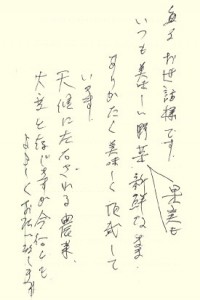 毎々お世話様です。
果実も
いつも美味しい野菜 新鮮なまま
ありがたく美味しく頂戴して
います。
天候に左右される農業、
大変と存じますが今后とも
よろしくお願い致します